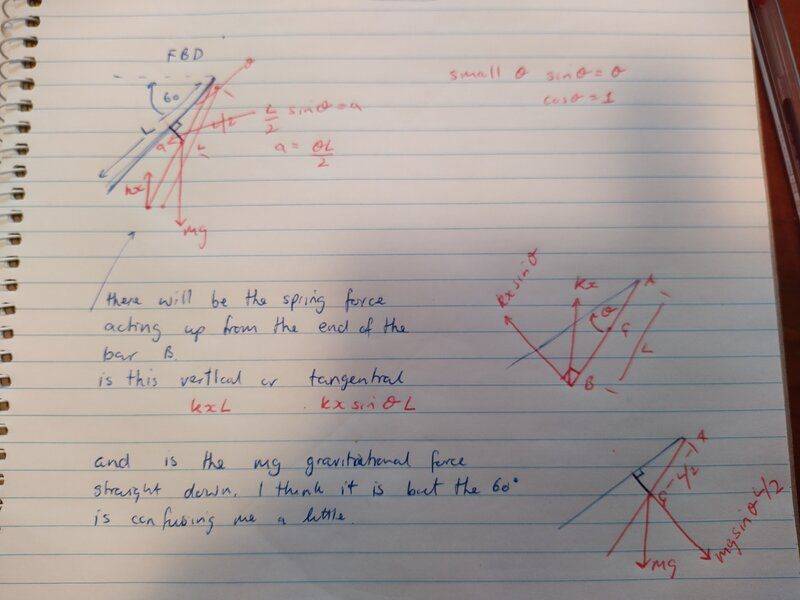 FBD
small θ sinθ = θ
cosθ = 1
θ
60
L
L/2
L/2 sinθ = a
a = θL/2
a
L
kx
mg
there will be the spring force
acting up from the end of the
bar B.
is this vertical or tangential
kxL kx sinθ L
kx sinθ
kx
A
θ
G
L
B
and is the mg gravitational force
straight down. I think it is but the 60°
is confusing me a little.
A
L/2
G
mg
mg sinθ L/2